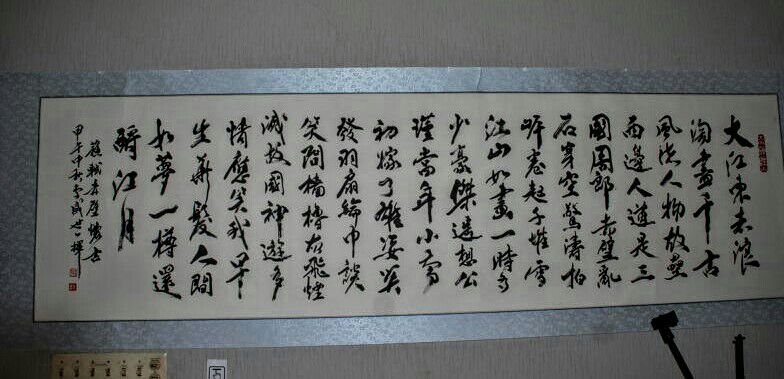 大江東去浪
淘盡千古
風流人物故壘
西邊人道是三
國周郎赤壁亂
石穿空驚濤拍
岸卷起千堆雪
江山如畫一時多
少豪傑遙想公
瑾當年小喬
初嫁了雄姿英
發羽扇綸巾談
笑間檣櫓灰飛煙
滅故國神遊多
情應笑我早
生華髮人間
如夢一樽還
酹江月
蘇軾赤壁懷古
甲午中秋